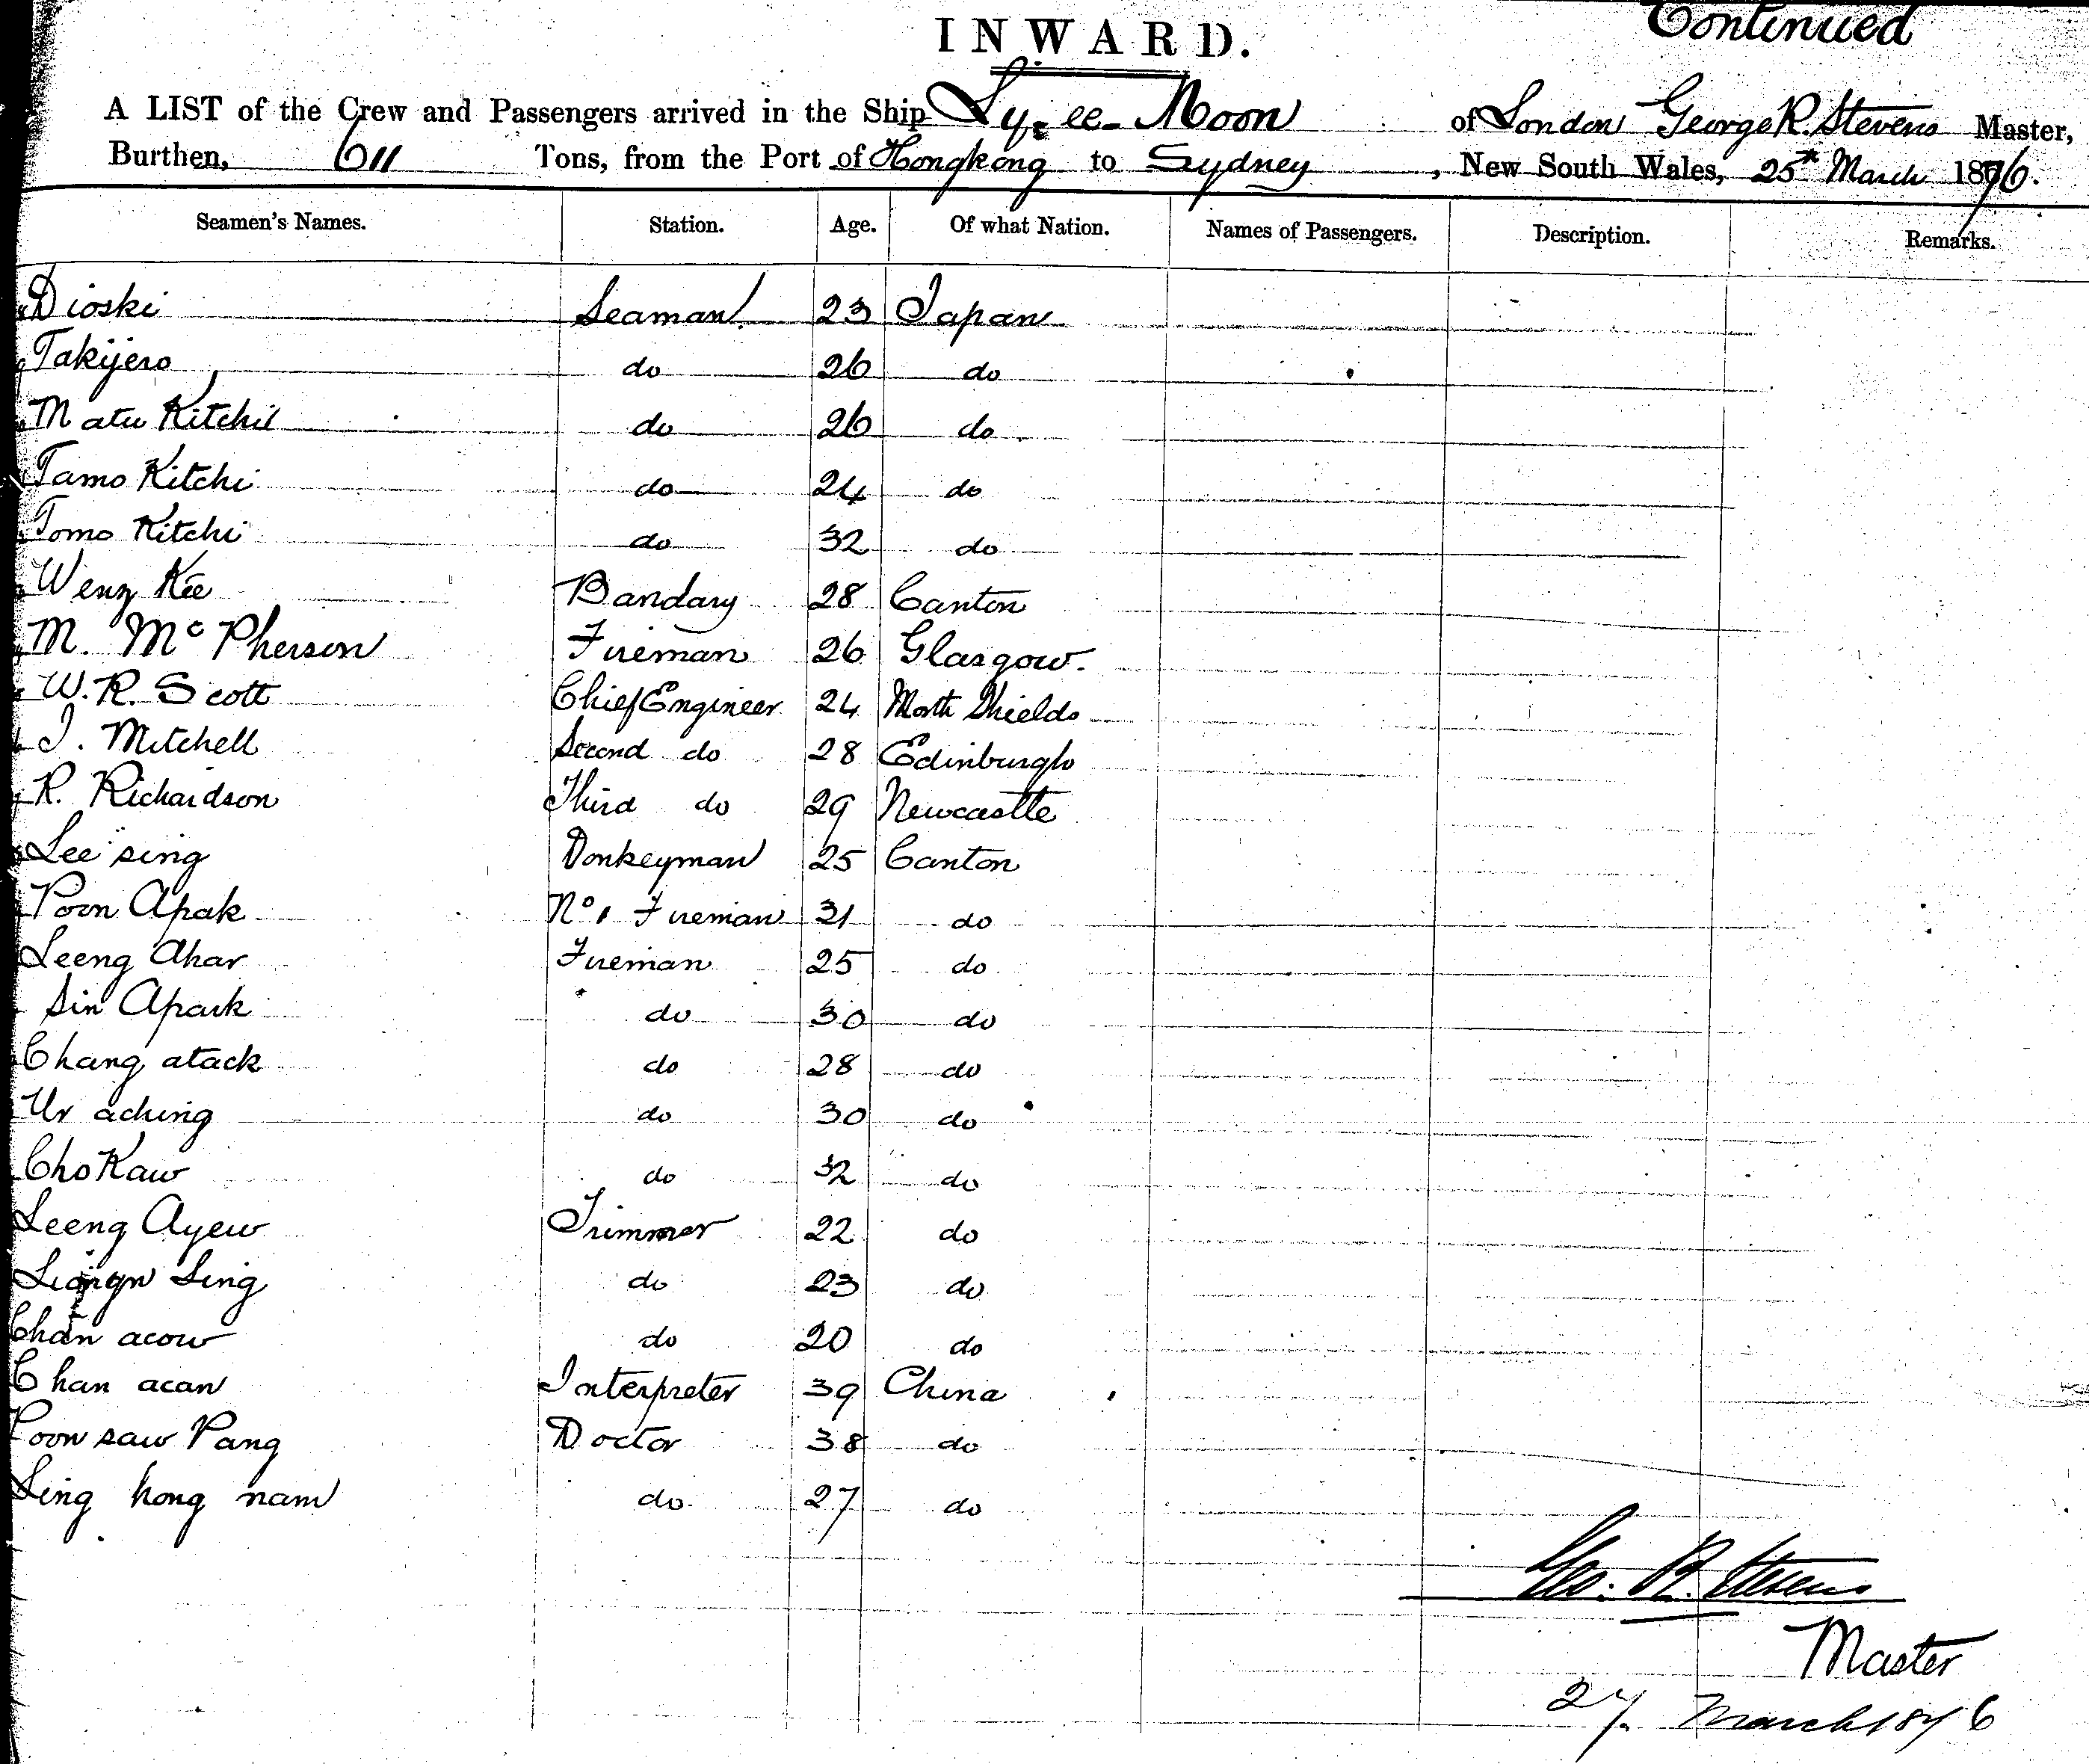 Continued
INWARD.
A LIST of the Crew and Passengers arrived in the Ship Ly-ee-Moon of London George R. Stevens Master,
Burthen, 611 Tons, from the Port of Hongkong to Sydney, New South Wales, 25th March 1876.
Seamen's Names. Station. Age. Of what Nation. Names of Passengers. Description. Remarks.
Dioski Seaman 23 Japan
Takijero do 26 do
Matu Kitchi do 26 do
Tamo Kitchi do 24 do
Tomo Kitchi do 32 do
Weng Kee Bandary 28 Canton
M. McPherson Fireman 26 Glasgow.
W. R. Scott Chief Engineer 24 North Shields
J. Mitchell Second do 28 Edinburgh
R. Richardson Third do 29 Newcastle
Lee sing Donkeyman 25 Canton
Poon Apak No 1 Fireman 31 do
Leeng Ahar Fireman 25 do
Sin Apark do 30 do
Chang atack do 28 do
Ur aching do 30 do
Cho Kaw do 32 do
Leeng Ayew Trimmer 22 do
Sing do 23 do
Chan acow do 20 do
Chan acan Interpreter 39 China
Poon saw Pang Doctor 38 do
Ling hong nam do 27 do
Geo. R. Stevens
Master
27 March 1876